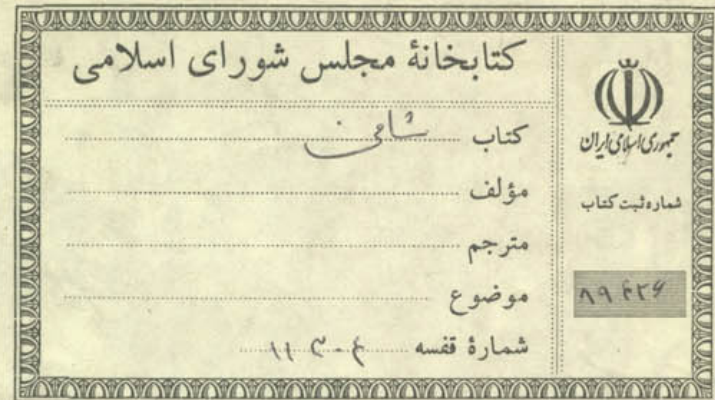 کتابخانهٔ مجلس شورای اسلامی
کتاب
مؤلف
مترجم
موضوع
شمارهٔ قفسه
جمهوری اسلامی ایران
شماره ثبت کتاب
۸۹۴۲۶